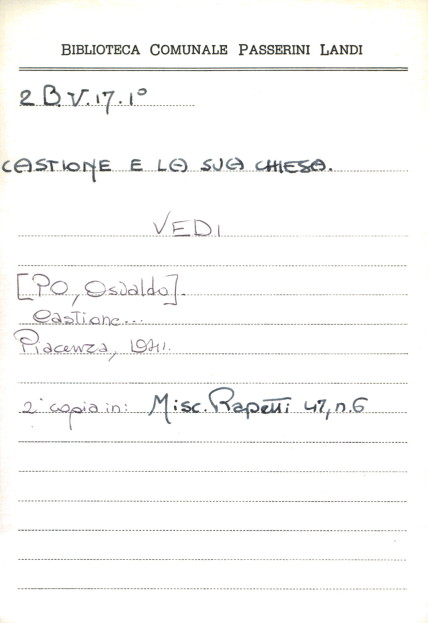 BIBLIOTECA COMUNALE PASSERINI LANDI
2 B.V.17.1°
CASTIONE E LA SUA CHIESA.
VEDI
[PO, Osvaldo].
Castione...
Piacenza, 1941.
2ª copia in: Misc. Rapetti 47, n.6